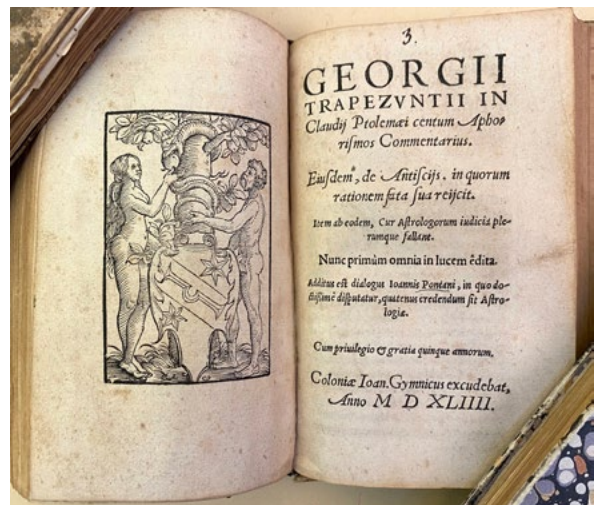 3.
GEORGII
TRAPEZVNTII IN
Claudij Ptolemæi centum Apho-
rismos Commentarius.
Eiusdem, de Antiscijs, in quorum
rationem fata sua reijcit.
Item ab eodem, Cur Astrologorum iudicia ple-
runque fallant.
Nunc primùm omnia in lucem êdita.
Additus est dialogus Ioannis Pontani, in quo do-
ctissimè disputatur, quatenus credendum sit Astro-
logiæ.
Cum priuilegio & gratia quinque annorum.
Coloniæ Ioan. Gymnicus excudebat,
Anno M D XLIIII.